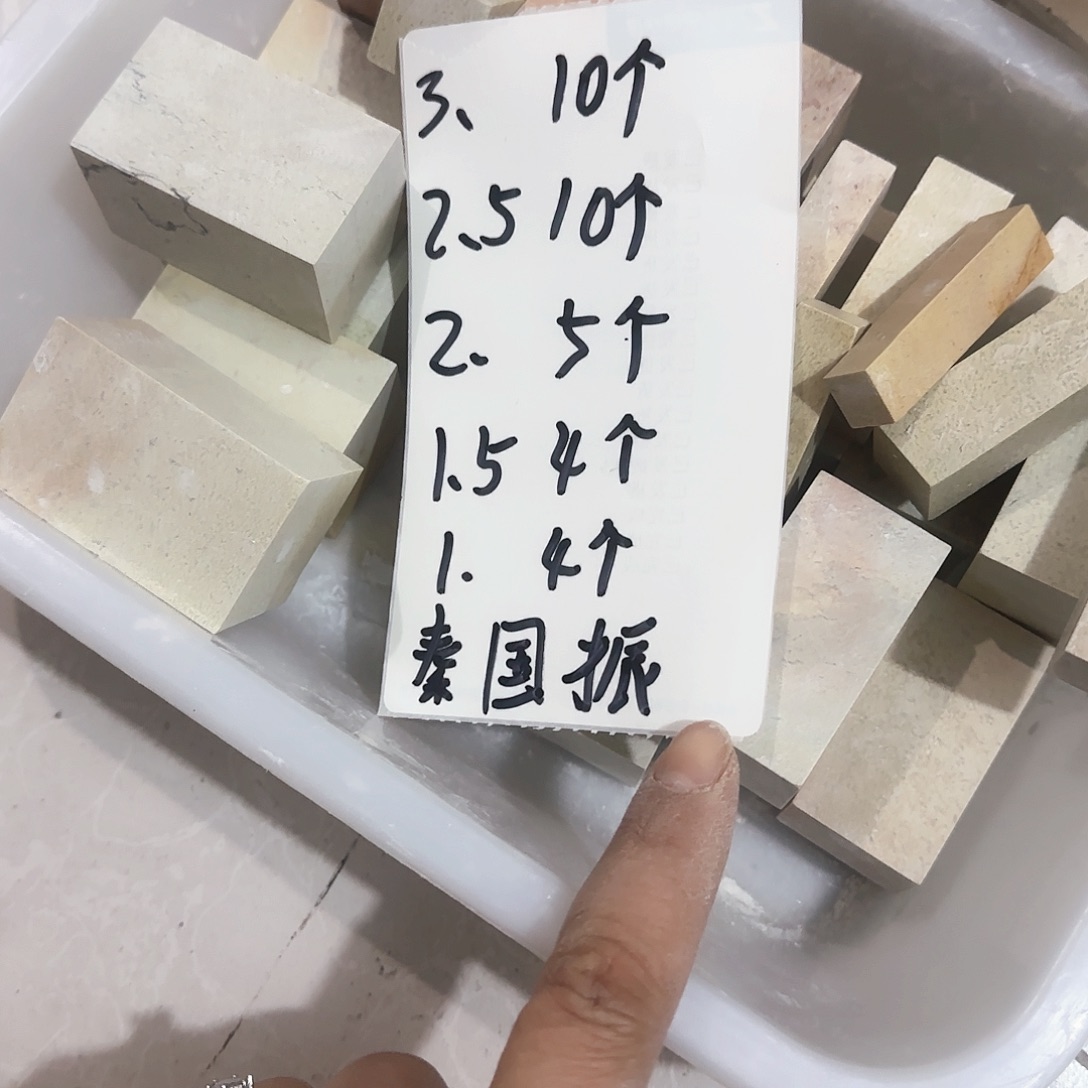 3、 10个
2.5 10个
2. 5个
1.5 4个
1. 4个
秦国振